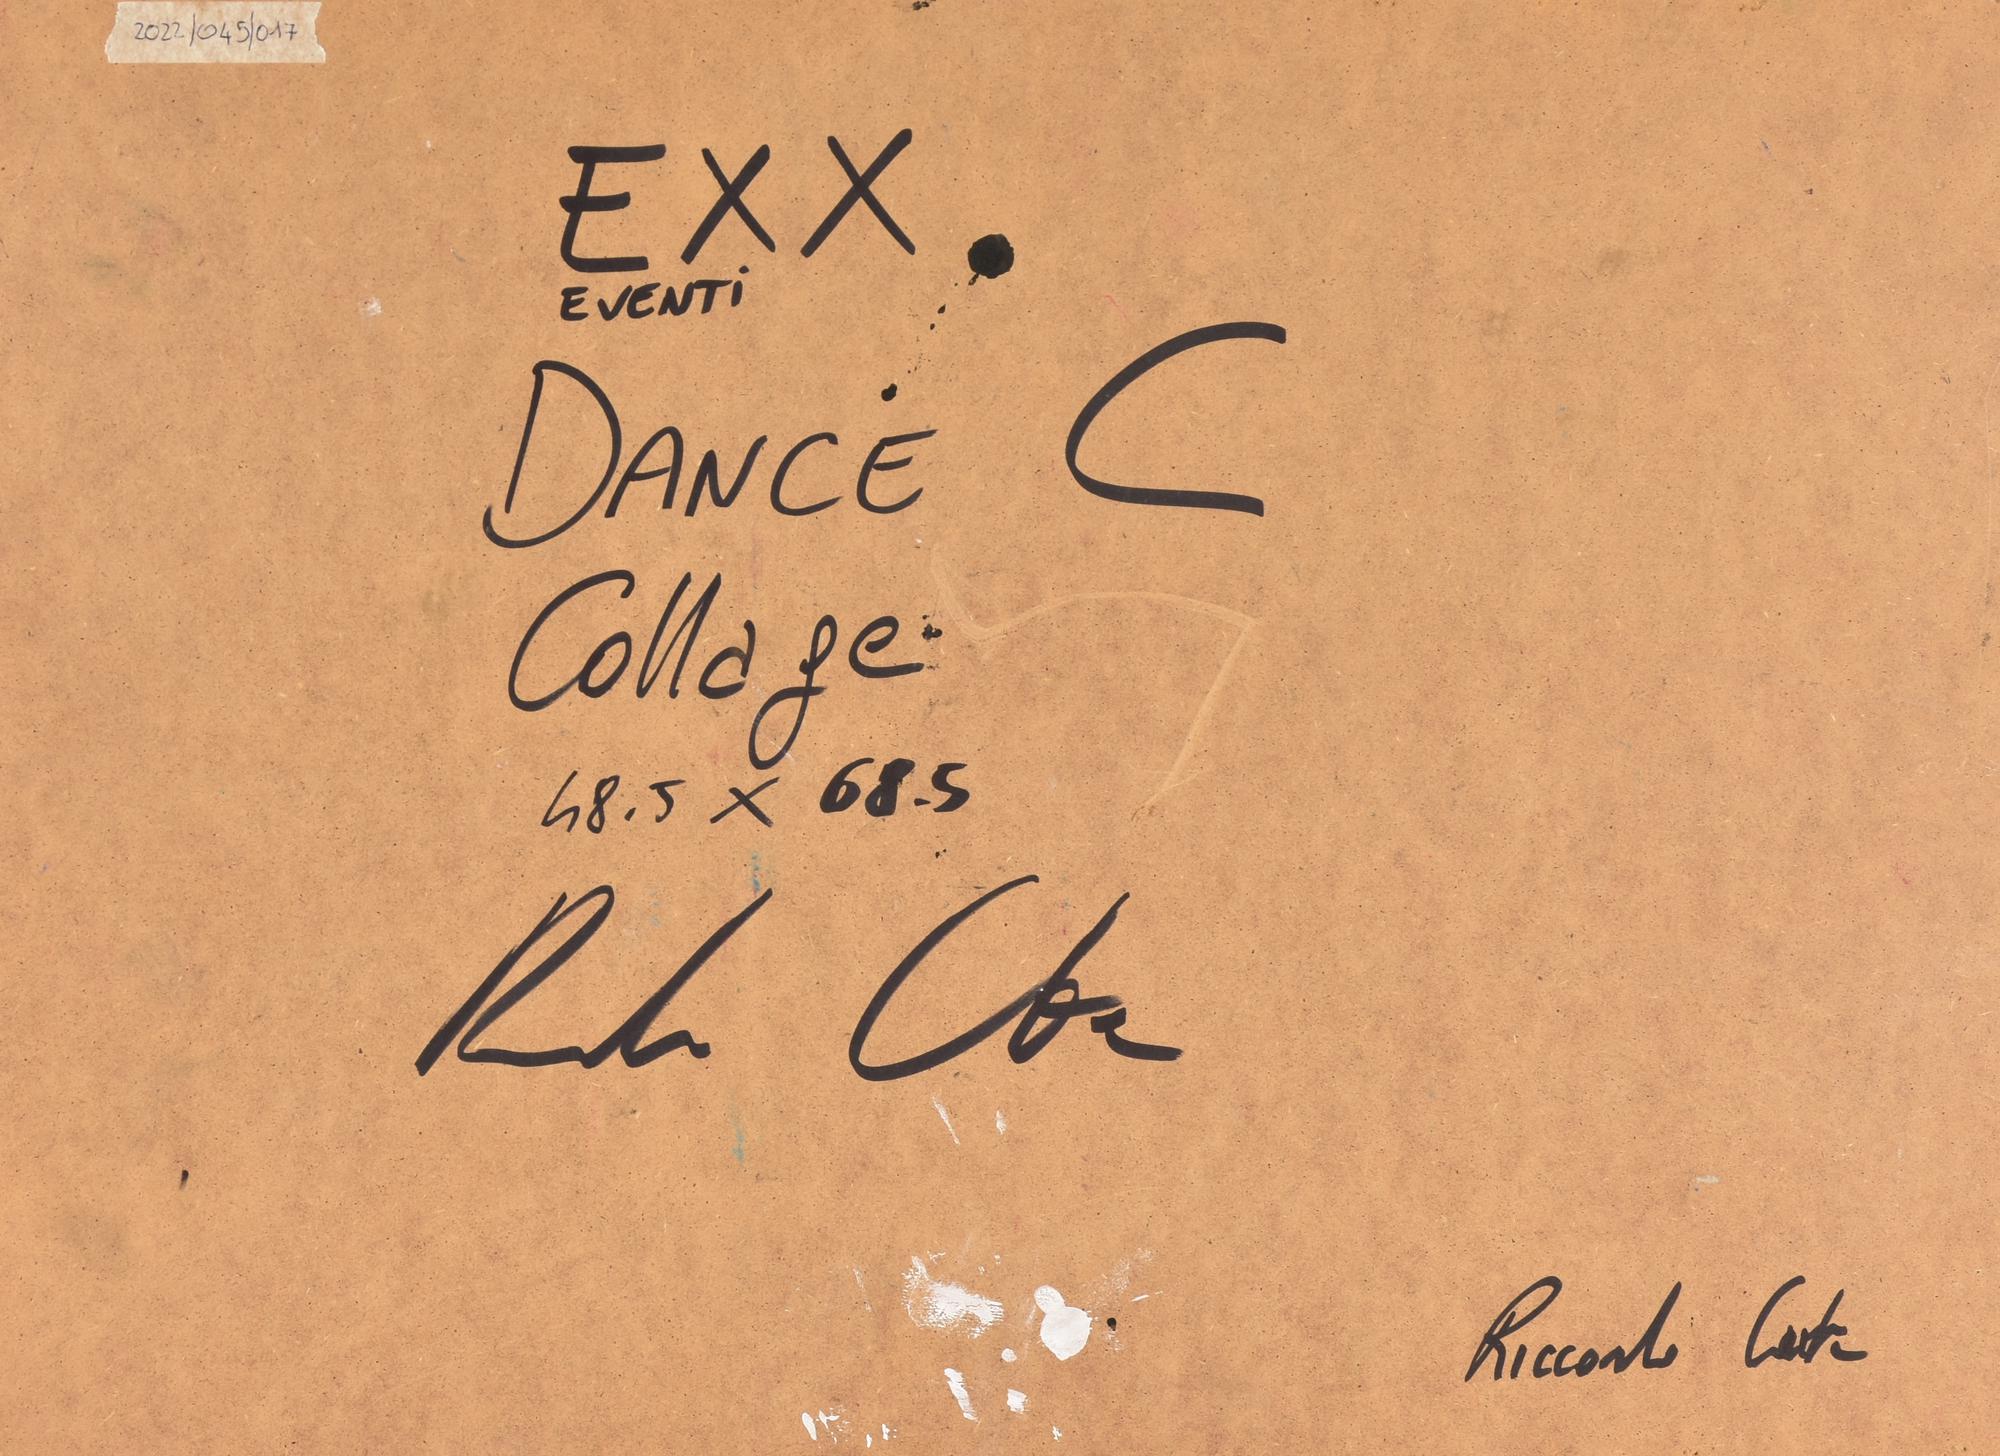 2022/045/017
EXX.
EVENTI
DANCE C
Collage
48.5 X 68.5
Riccardo